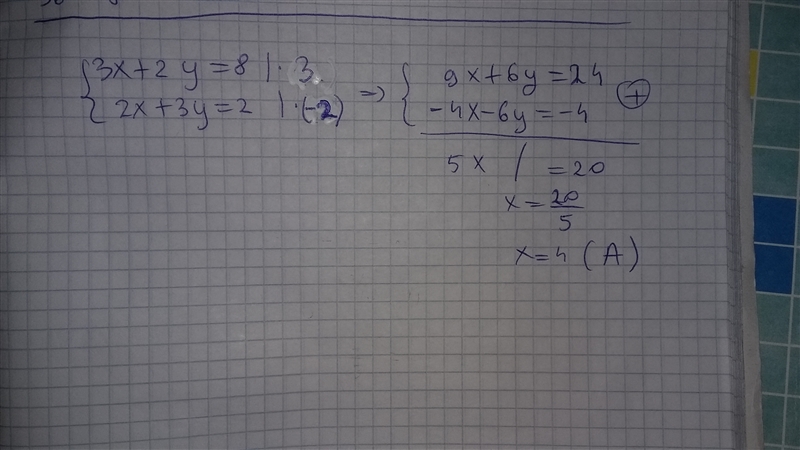 {3x+2y=8 |·3 => {9x+6y=24
2x+3y=2 |·(-2) -4x-6y=-4 (+)
5x / =20
x=20/5
x=4 (A)